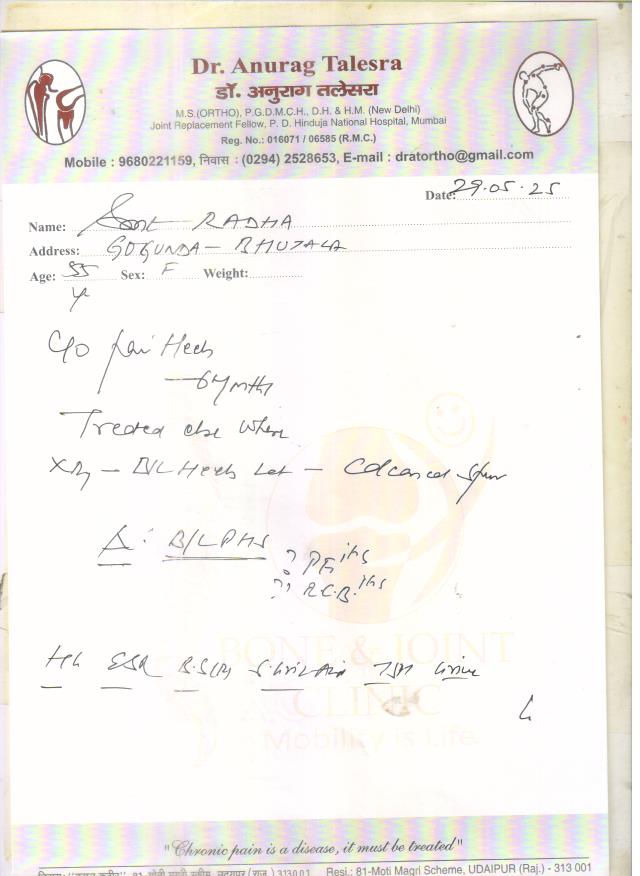 Dr. Anurag Talesra
डॉ. अनुराग तलेसरा
M.S.(ORTHO), P.G.D.M.C.H., D.H. & H.M. (New Delhi)
Joint Replacement Fellow, P. D. Hinduja National Hospital, Mumbai
Reg. No.: 016071 / 06585 (R.M.C.)
Mobile : 9680221159, निवास : (0294) 2528653, E-mail : dratortho@gmail.com
Date: 29.05.25
Name: RADHA
Address: GOGUNDA - BHUTALA
Age: 55 Sex: F Weight:
yr
C/o pain Heels
6 mths
Treated else where
XRay - B/L Heels Lat - Calcaneal Spur
Δ: B/L PHS
? PF itis
?? R.C.B. itis
Hb ESR B.S(R) S. Uric Acid TSH Urine
BONE & JOINT
CLINIC
Mobility is Life
"Chronic pain is a disease, it must be treated"
Resi.: 81-Moti Magri Scheme, UDAIPUR (Raj.) - 313 001